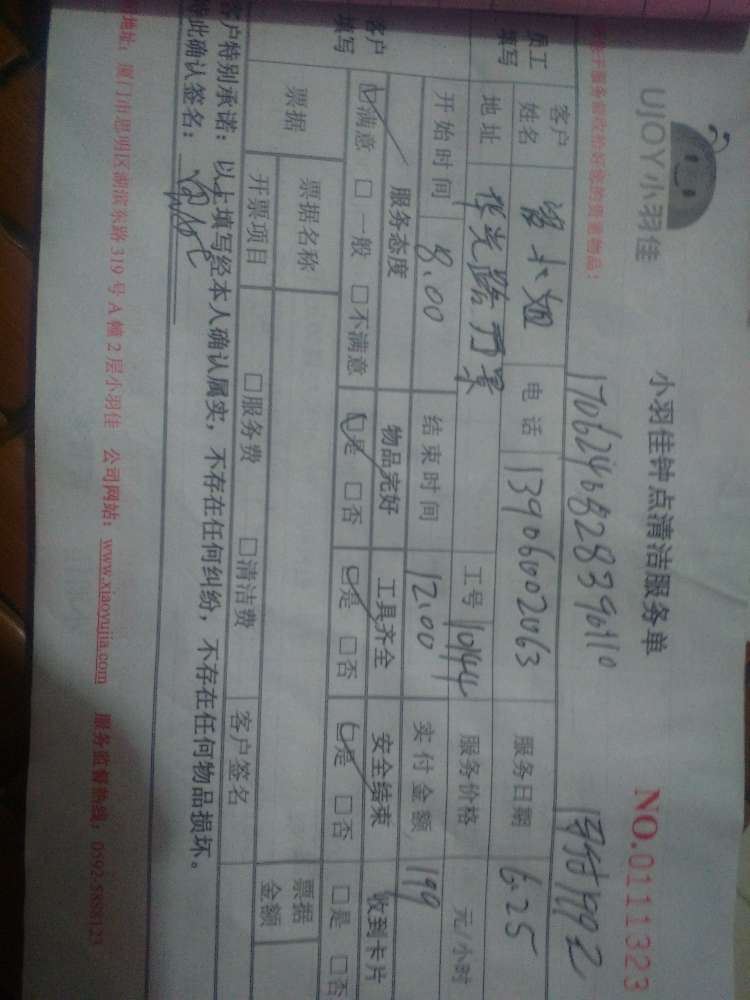 UJOY小羽佳
小羽佳钟点清洁服务单
NO.0111323
服务前收拾好您的贵重物品:
员工填写
客户姓名 小姐 电话 13906002063 服务日期 6.25
地址 华光路 工号 10144 服务价格 元/小时
开始时间 8.00 结束时间 12.00 实付金额 199
客户填写
服务态度 物品完好 工具齐全 安全结束 收到卡片
☑满意 □一般 □不满意 ☑是 □否 ☑是 □否 ☑是 □否 □是 □否
票据 票据名称 票据金额
开票项目 □服务费 □清洁费 客户签名
客户特别承诺:以上填写经本人确认属实,不存在任何纠纷,不存在任何物品损坏。
特此确认签名:
地址:厦门市思明区湖滨东路319号A幢2层小羽佳 公司网站:www.xiaoyujia.com 服务监督热线:0592-5888123